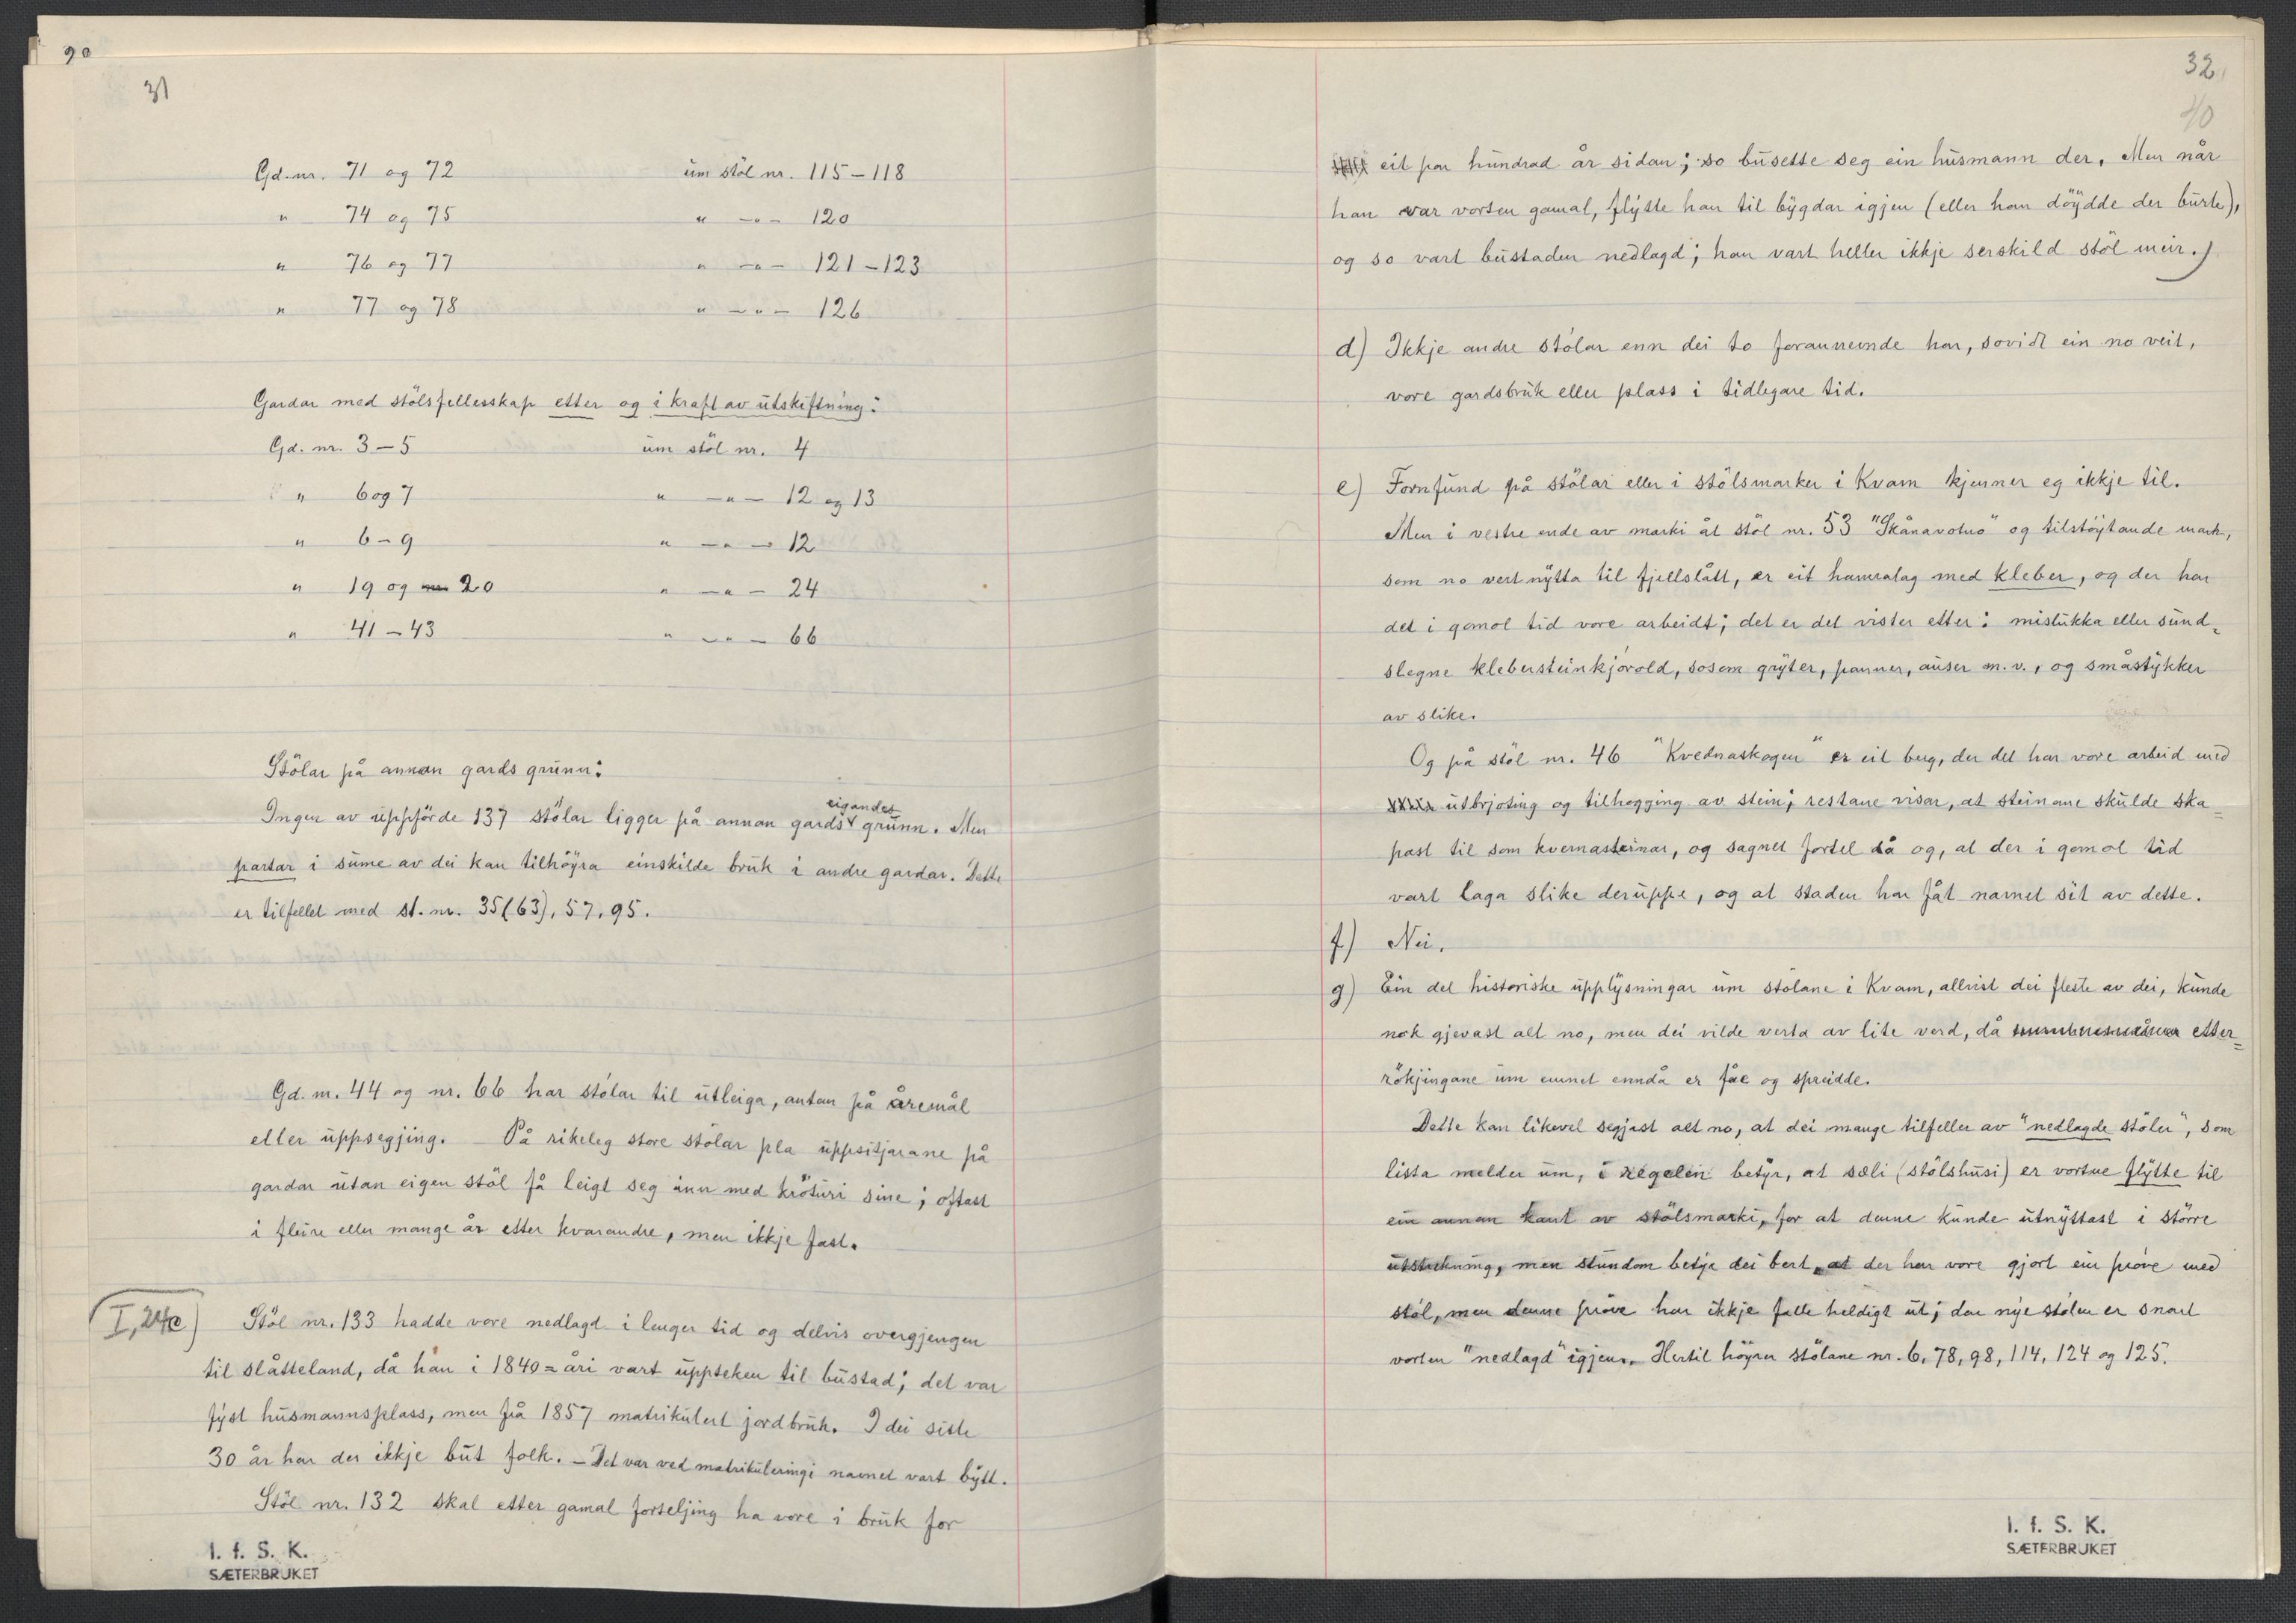 90
31
Gd. nr. 71 og 72 um stöl nr. 115-118
" 74 og 75 " -"- 120
" 76 og 77 " -"- 121-123
" 77 og 78 " -"- 126
Gardar med stölsfellesskap etter og i kraft av utskiftning:
Gd. nr. 3-5 um stöl nr. 4
" 6 og 7 " -"- 12 og 13
" 6-9 " -"- 12
" 19 og 20 " -"- 24
" 41-43 " -"- 66
Stölar på annan gards grunn:
eigandes
Ingen av uppförde 137 stölar ligger på annan gards grunn. Men
partar i sume av dei kan tilhöyra einskilde bruk i andre gardar. Dette
er tilfellet med st. nr. 35(63), 57, 95.
Gd. nr. 44 og nr. 66 har stölar til utleiga, antan på åremål
eller uppsegjing. - På rikeleg store stölar pla uppsitjarane på
gardar utan eigen stöl få leigt seg inn med kröturi sine; oftast
i fleire eller mange år etter kvarandre, men ikkje fast.
I, 24c) Stöl nr. 133 hadde vore nedlagd i lenger tid og delvis overgjengen
til slåtteland, då han i 1840=åri vart uppteken til bustad; det var
fyst husmannsplass, men frå 1857 matrikulert jordbruk. I dei siste
30 år har der ikkje but folk. - Det var ved matrikuleringi namnet vart bytt.
Stöl nr. 132 skal etter gamal forteljing ha vore i bruk for
I. f. S. K.
SÆTERBRUKET
32
40
eit par hundrad år sidan; so busette seg ein husmann der. Men når
han var vorten gamal, flytte han til bygdar igjen (eller han döydde der burte),
og so vart bustaden nedlagd; han vart heller ikkje serskild stöl meir.)
d) Ikkje andre stölar enn dei to forannemnde har, sovidt ein no veit,
vore gardsbruk eller plass i tidlegare tid.
e) Fornfund på stölar eller i stölsmarker i Kvam kjenner eg ikkje til.
Men i vestre ende av marki åt stöl nr. 53 "Skånavotno" og tilstöytande mark,
som no vert nytta til fjellslått, er eit hamralag med kleber, og der har
det i gomol tid vore arbeidt; det er det vister etter: mislukka eller sund=
slegne klebersteinkjörold, sosom gryter, panner, auser m. v., og småstykker
av slike.
Og på stöl nr. 46 "Kvednaskogen" er eit berg, der det har vore arbeid med
utbrjoting og tilhogging av stein; restane visar, at steinane skulde ska=
past til som kvernasteinar, og sagnet fortel då og, at der i gomol tid
vart laga slike deruppe, og at staden har fåt namnet sit av dette.
f) Nei.
g) Ein del historiske upplysningar um stölane i Kvam, allvist dei fleste av dei, kunde
nok gjevast alt no, men dei vilde verta av lite verd, då etter=
rökjingane um emnet enndå er fåe og spreidde.
Dette kan likevel segjast alt no, at dei mange tilfeller av "nedlagde stöler", som
lista melder um, i regelen betyr, at sæli (stölshusi) er vortne flytte til
ein annan kant av stölsmarki, for at denne kunde utnyttast i större
utstrekning, men stundom betyr dei bert, at der har vore gjort ein pröve med
stöl, men denne pröve har ikkje falle heldigt ut; den nye stölen er snart
vorten "nedlagd" igjen. Hertil höyrer stölane nr. 6, 78, 98, 114, 124 og 125.
I. f. S. K.
SÆTERBRUKET